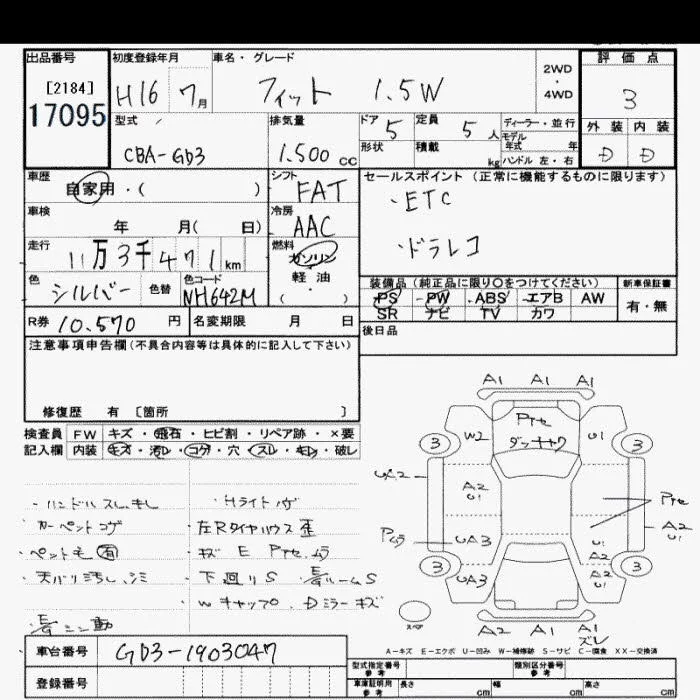 出品番号 初度登録年月 車名・グレード 2WD・4WD 評価点
[2184]
17095 H16 7月 フィット 1.5W 3
型式 排気量 ドア 5 定員 5人 ディーラー・並行 外装 内装
CBA-GD3 1.500cc 形状 積載 kg モデル年式 年 D D
ハンドル 左・右
車歴 自家用・( ) シフト FAT セールスポイント(正常に機能するものに限ります)
・ETC
車検 年 月( 日) 冷房 AAC
・ドラレコ
走行 11万3千471km 燃料 ガソリン
軽油
・
( )
色 シルバー 色替 色コード NH642M
装備品(純正品に限り○をつけてください) 新車保証書
PS PW ABS エアB AW 有・無
SR ナビ TV カワ
R券 10.570円 名変期限 月 日 後日品
注意事項申告欄(不具合内容等は具体的に記入して下さい)
修復歴 有 〔箇所 〕
検査員 FW キズ・飛石・ヒビ割・リペア跡・×要
記入欄 内装 キズ・汚レ・コゲ・穴・スレ・キレ・破レ
・ハンドルスレ、キレ
・カーペットコゲ
・ペット毛 有
・天バリ汚し、シミ
・Hライトハゲ
・左Rタイヤハウス歪
・キズ E Pte.ムラ
・下廻りS
・Wキャップ、Dミラーキズ
A1 A1 A1
Pte
ダッキャク
3 W2 U1 3
A2
U1
Pte
A2
U1
Pムラ UA3
U1
A2
3 UA3 U1 3
A2 A1 A1
ズレ
スペア
A-キズ E-エクボ U-凹み W-補修跡 S-サビ C-腐食 XX-交換済
車台番号 GD3-1903047
登録番号
型式指定番号 参考 類別区分番号 参考
車庫証明用 参考 長さ cm 幅 cm 高さ cm